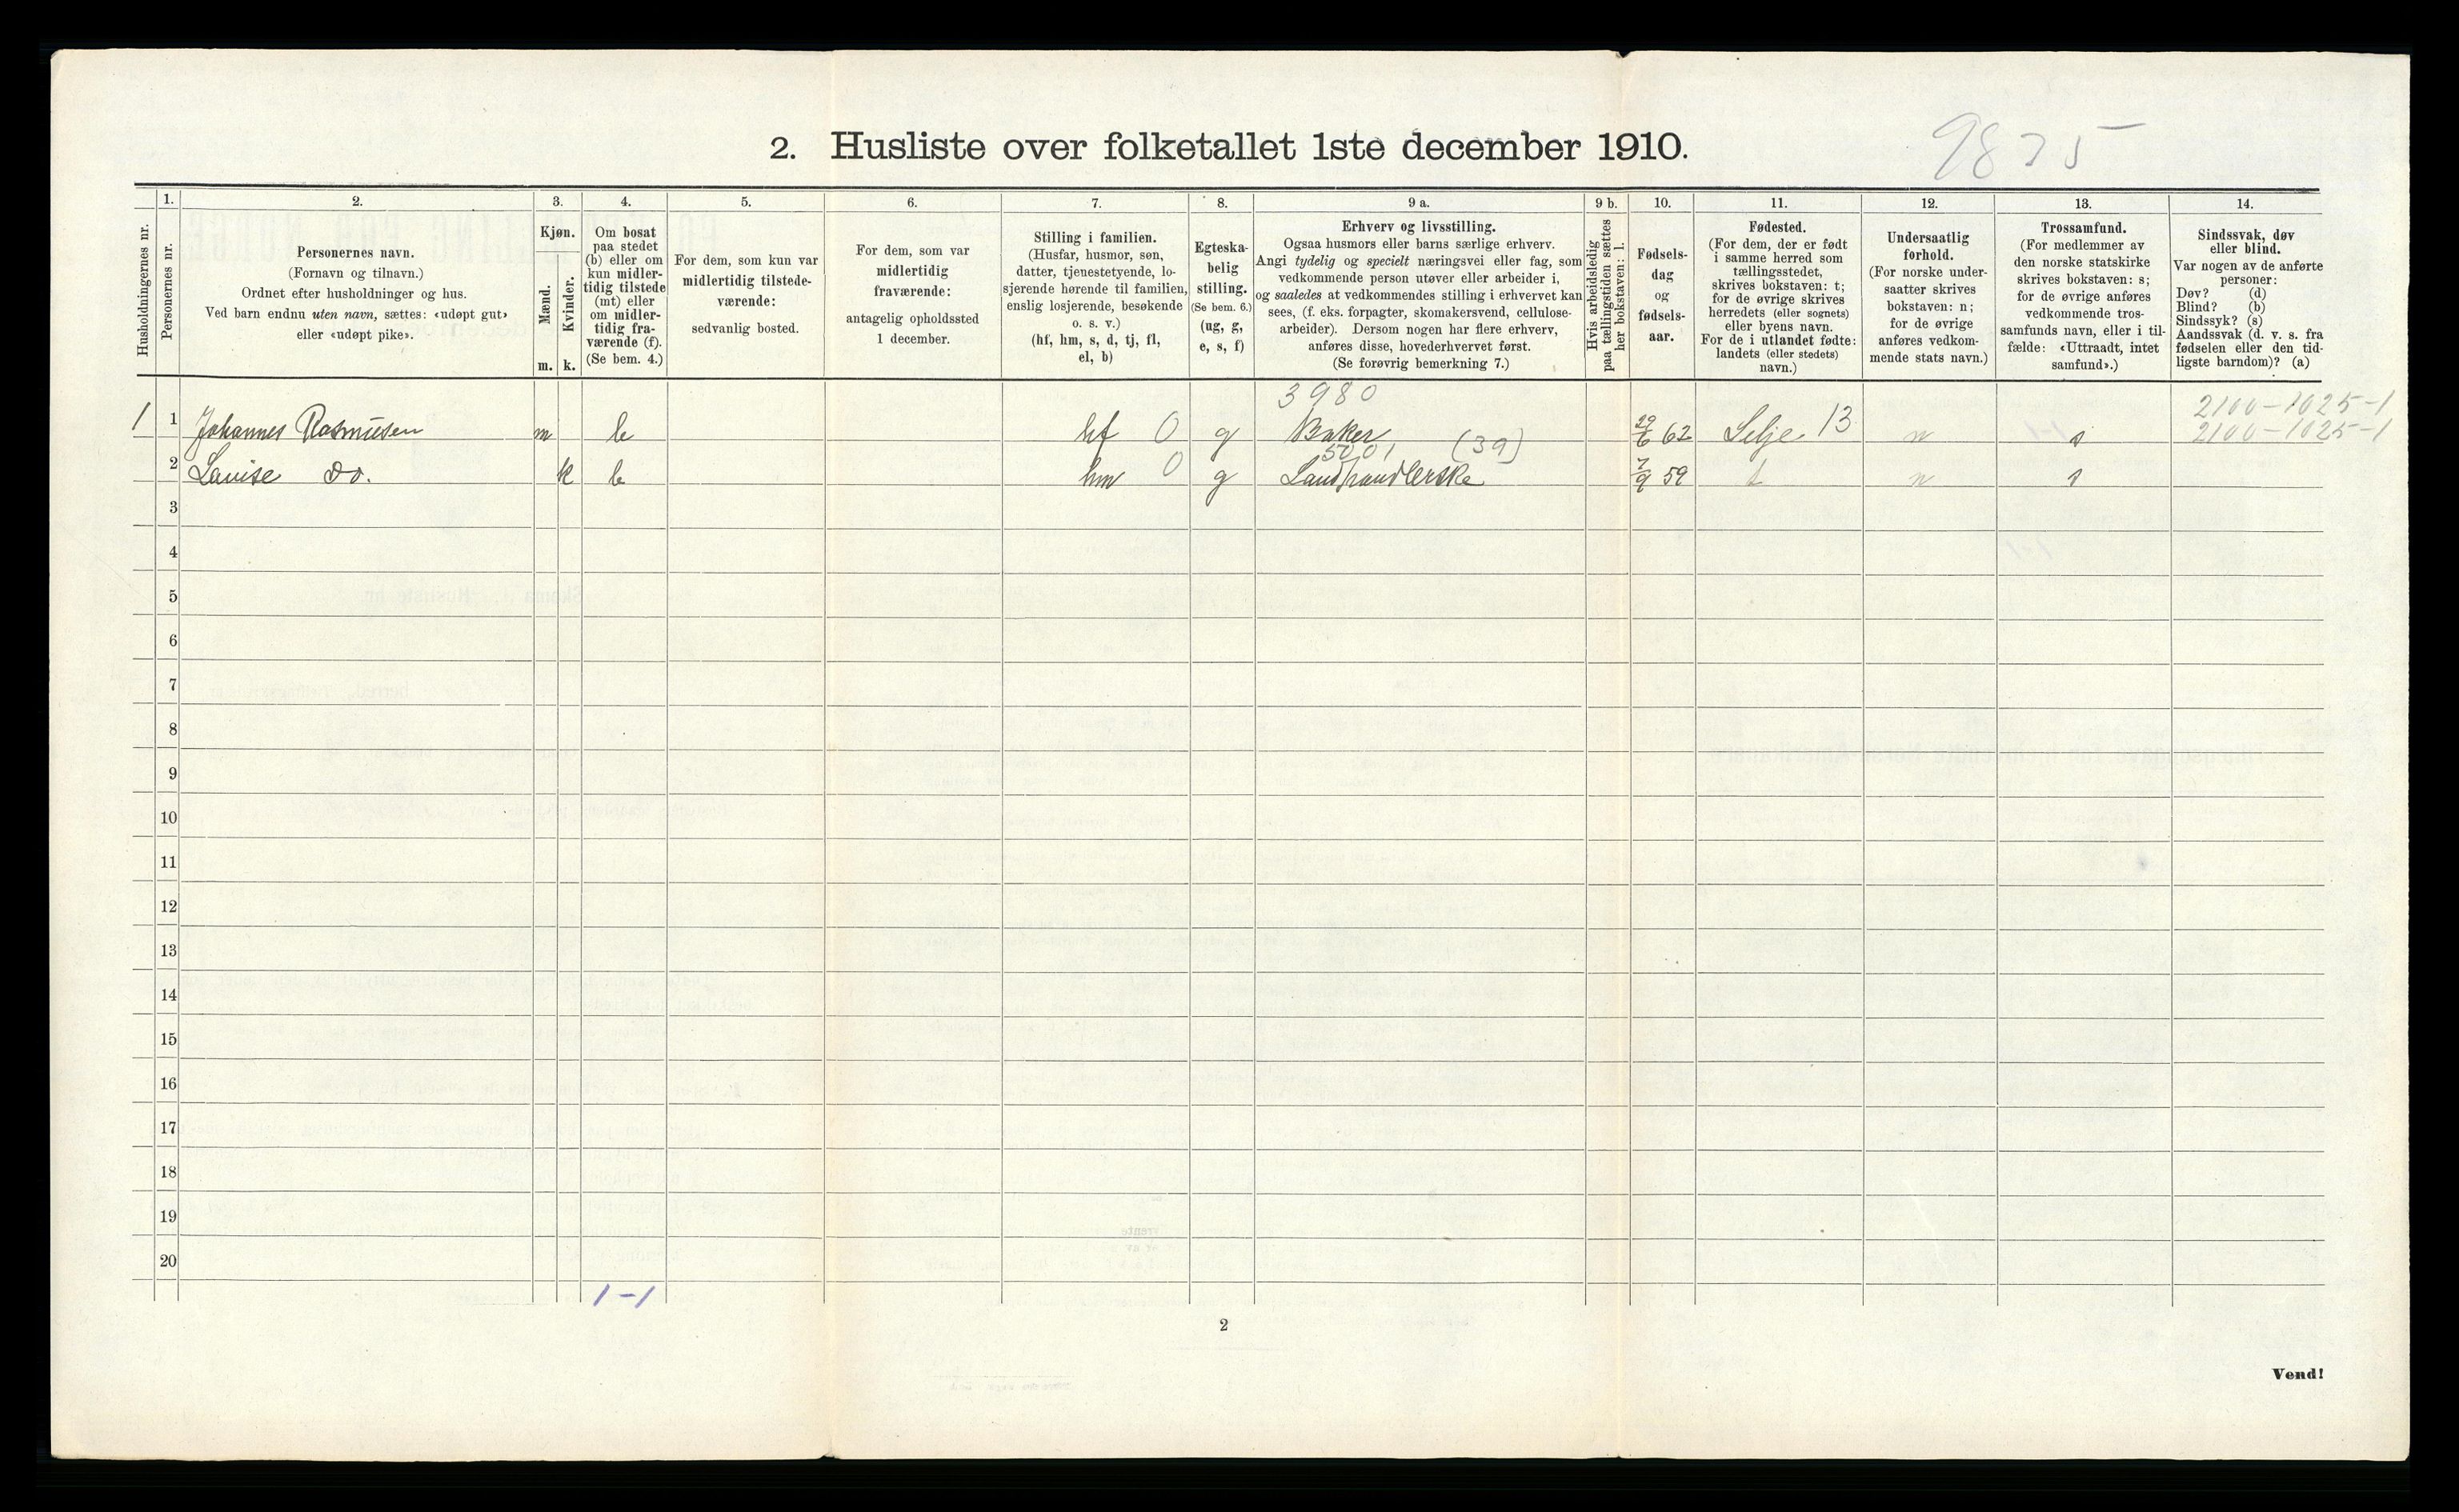 2. Husliste over folketallet 1ste december 1910.
9835
Husholdningernes nr.
1.
Personernes nr.
2.
Personernes navn.
(Fornavn og tilnavn.)
Ordnet efter husholdninger og hus.
Ved barn endnu uten navn, sættes: «udøpt gut»
eller «udøpt pike».
3.
Kjøn.
Mænd.
Kvinder.
m. k.
4.
Om bosat
paa stedet
(b) eller om
kun midler-
tidig tilstede
(mt) eller
om midler-
tidig fra-
værende (f).
(Se bem. 4.)
5.
For dem, som kun var
midlertidig tilstede-
værende:
sedvanlig bosted.
6.
For dem, som var
midlertidig
fraværende:
antagelig opholdssted
1 december.
7.
Stilling i familien.
(Husfar, husmor, søn,
datter, tjenestetyende, lo-
sjerende hørende til familien,
enslig losjerende, besøkende
o. s. v.)
(hf, hm, s, d, tj, fl,
el, b)
8.
Egteska-
belig
stilling.
(Se bem. 6.)
(ug, g,
e, s, f)
9 a.
Erhverv og livsstilling.
Ogsaa husmors eller barns særlige erhverv.
Angi tydelig og specielt næringsvei eller fag, som
vedkommende person utøver eller arbeider i,
og saaledes at vedkommendes stilling i erhvervet kan
sees, (f. eks. forpagter, skomakersvend, cellulose-
arbeider). Dersom nogen har flere erhverv,
anføres disse, hovederhvervet først.
(Se forøvrig bemerkning 7.)
9 b.
Hvis arbeidsledig
paa tællingstiden sættes
her bokstaven: l.
10.
Fødsels-
dag
og
fødsels-
aar.
11.
Fødested.
(For dem, der er født
i samme herred som
tællingsstedet,
skrives bokstaven: t;
for de øvrige skrives
herredets (eller sognets)
eller byens navn.
For de i utlandet fødte:
landets (eller stedets)
navn.)
12.
Undersaatlig
forhold.
(For norske under-
saatter skrives
bokstaven: n;
for de øvrige
anføres vedkom-
mende stats navn.)
13.
Trossamfund.
(For medlemmer av
den norske statskirke
skrives bokstaven: s;
for de øvrige anføres
vedkommende tros-
samfunds navn, eller i til-
fælde: «Uttraadt, intet
samfund».)
14.
Sindssvak, døv
eller blind.
Var nogen av de anførte
personer:
Døv? (d)
Blind? (b)
Sindssyk? (s)
Aandssvak (d. v. s. fra
fødselen eller den tid-
ligste barndom)? (a)
3980 2100-1025-1
1 1 Johannes Rasmusen m b hf 0 g Baker (39) 29/6 62 Selje 13 n s 2100-1025-1
5001
2 Lauise Do. k b hm 0 g Landhandlerske 7/9 59 t n s
3
4
5
6
7
8
9
10
11
12
13
14
15
16
17
18
19
20
1-1
2
Vend!